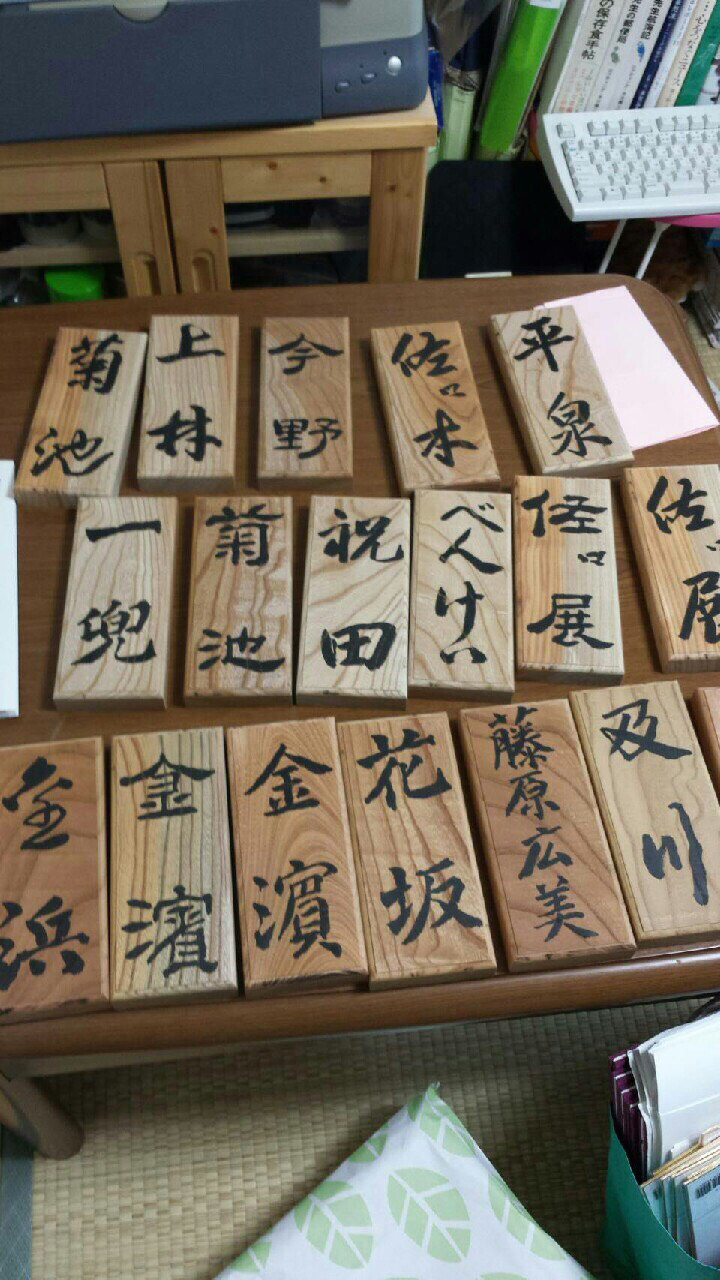 菊池
上林
今野
佐々木
平泉
一兜
菊池
祝田
べんけい
佐々
金浜
金濱
金濱
花坂
藤原広美
及川
の保存食手帖